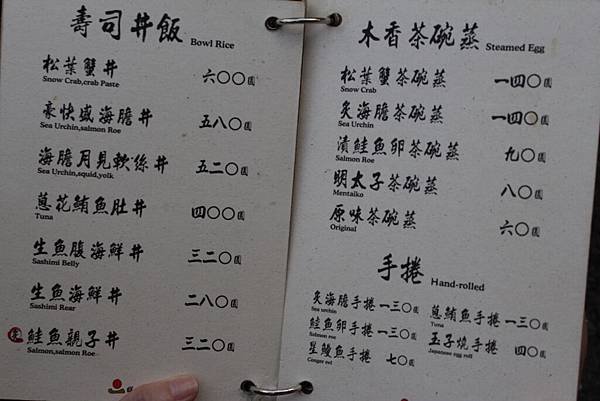 壽司丼飯 Bowl Rice
松葉蟹丼 六〇〇圓
Snow Crab,crab Paste
豪快盛海膽丼 五八〇圓
Sea Urchin,salmon Roe
海膽月見軟絲丼 五二〇圓
Sea Urchin,squid,yolk
蔥花鮪魚肚丼 四〇〇圓
Tuna
生魚腹海鮮丼 三二〇圓
Sashimi Belly
生魚海鮮丼 二八〇圓
Sashimi Rear
鮭魚親子丼 三二〇圓
Salmon,salmon Roe
木香茶碗蒸 Steamed Egg
松葉蟹茶碗蒸 一四〇圓
Snow Crab
炙海膽茶碗蒸 一四〇圓
Sea Urchin
漬鮭魚卵茶碗蒸 九〇圓
Salmon Roe
明太子茶碗蒸 八〇圓
Mentaiko
原味茶碗蒸 六〇圓
Original
手捲 Hand-rolled
炙海膽手捲 一三〇圓
Sea urchin
鮭魚卵手捲 一三〇圓
Salmon roe
星鰻魚手捲 七〇圓
Conger eel
蔥鮪魚手捲 一三〇圓
Tuna
玉子燒手捲 四〇圓
Japanese egg roll